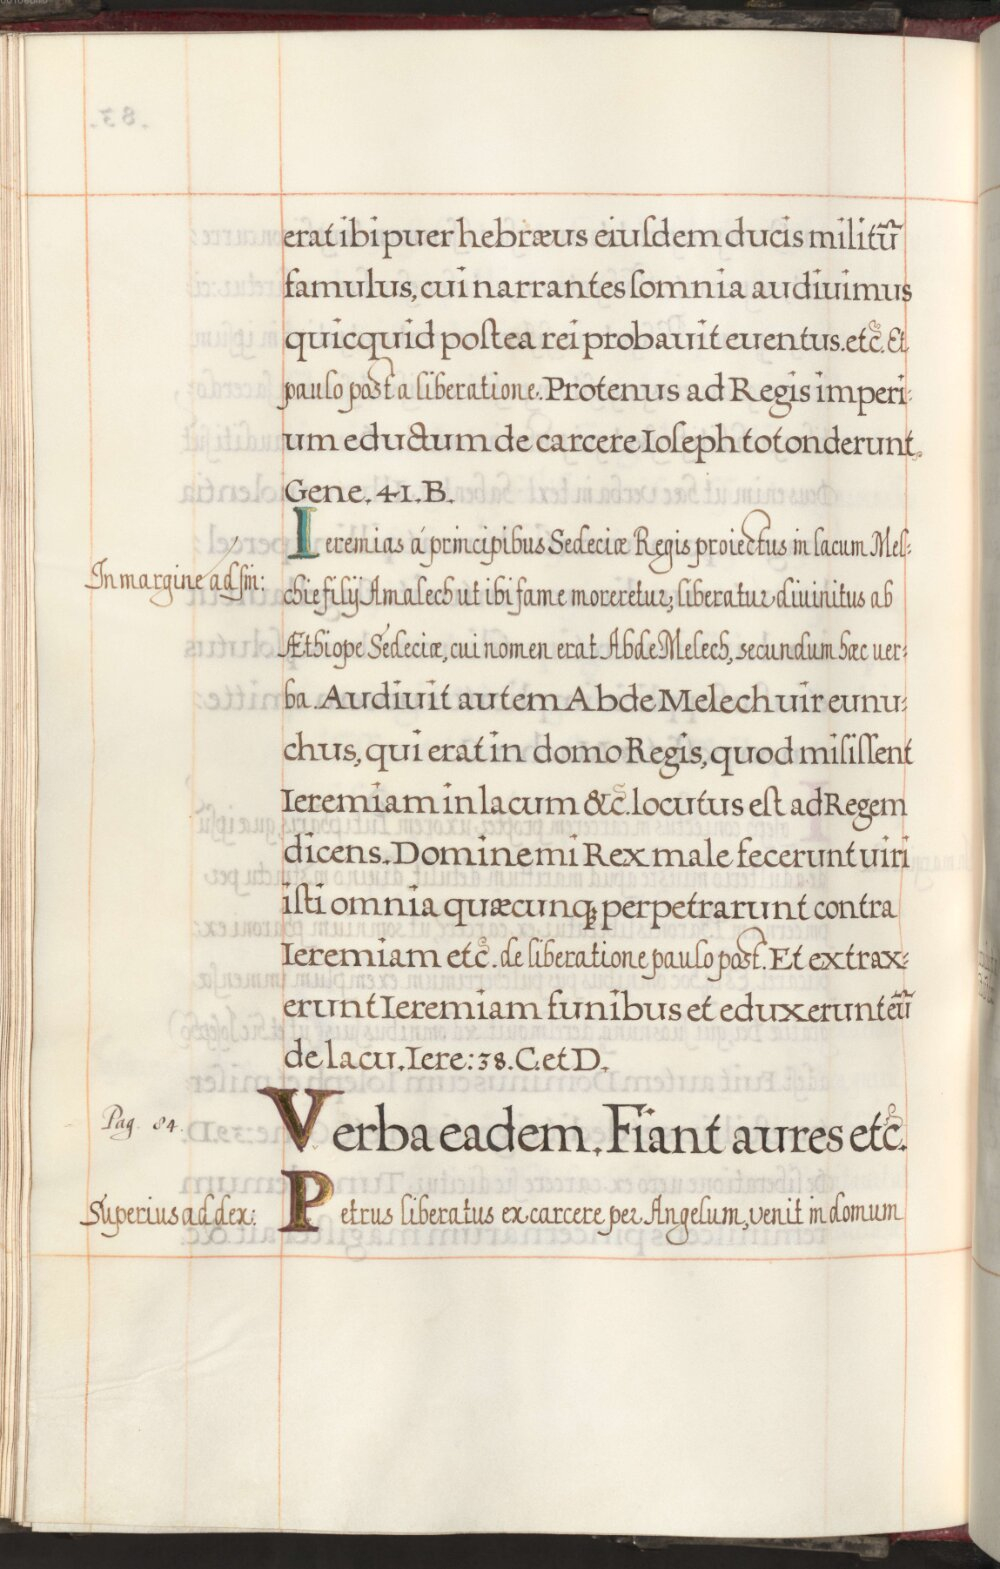 erat ibi puer hebræus eiusdem ducis militũ
famulus, cui narrantes somnia audiuimus
quicquid postea rei probauit euentus. etc̃. Et
paulo post a liberatione. Protenus ad Regis imperi:
um eductum de carcere Ioseph totonderunt.
Gene. 41. B.
In margine ad sin:
Ieremias á principibus Sedeciæ Regis proiectus in lacum Mel:
chie filij Amalech ut ibi fame moreretur, liberatur diuinitus ab
Æthiope Sedeciæ, cui nomen erat AbdeMelech, secundum hæc uer:
ba. Audiuit autem AbdeMelech uir eunu:
chus, qui erat in domo Regis, quod misissent
Ieremiam in lacum &c̃. locutus est ad Regem
dicens. Domine mi Rex male fecerunt uiri
isti omnia quæcunq; perpetrarunt contra
Ieremiam etc̃. de liberatione paulo post. Et extrax:
erunt Ieremiam funibus et eduxerunt eũ
de lacu. Iere: 38. C. et D.
Pag. 84.
Verba eadem. Fiant aures etc̃.
Superius ad dex:
Petrus liberatus ex carcere per Angelum, venit in domum